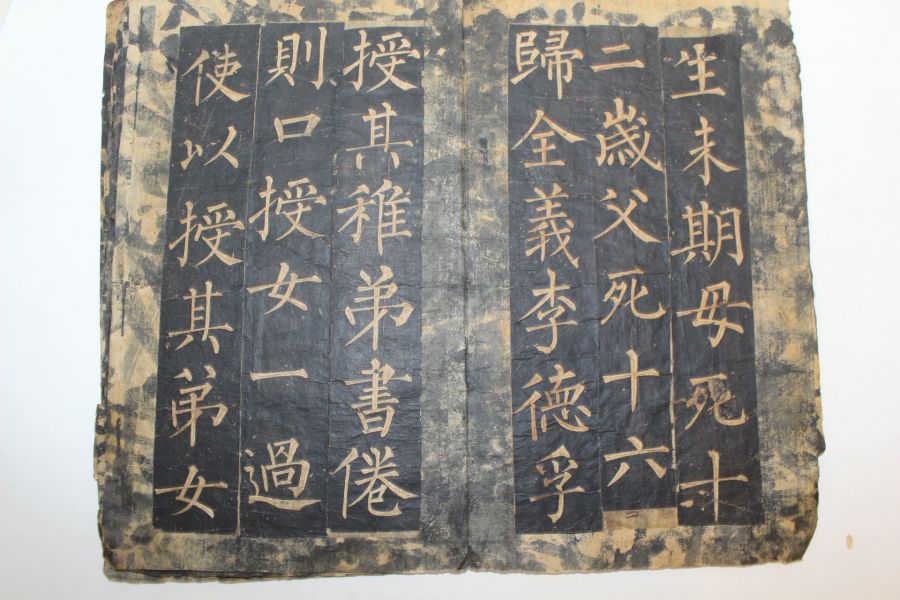 生未期母死十
二歲父死十六
歸全義李德孚
授其稚弟書倦
則口授女一過
使以授其弟女